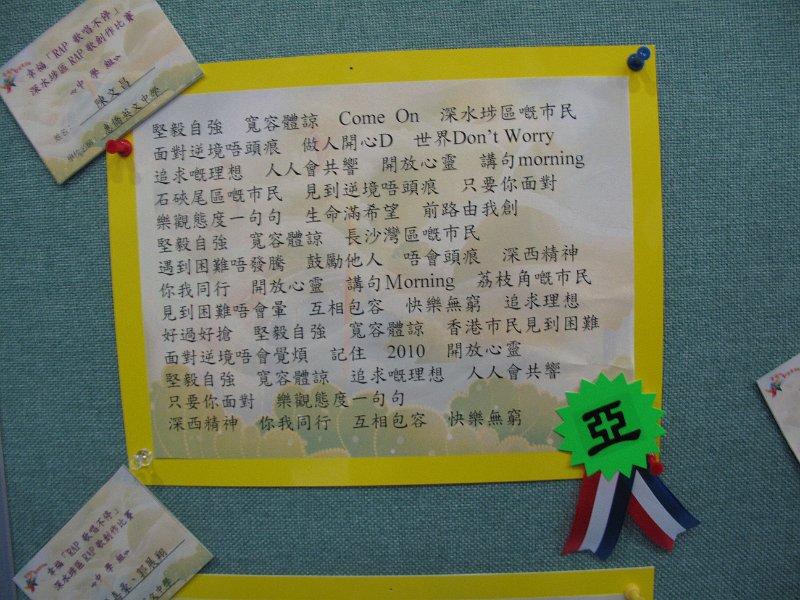 幸福「RAP 歌唱不停」
深水埗區 RAP 歌創作比賽
《中 學 組》
陳文昌
惠僑英文中學
堅毅自強 寬容體諒 Come On 深水埗區嘅市民
面對逆境唔頭痕 做人開心D 世界Don't Worry
追求嘅理想 人人會共響 開放心靈 講句morning
石硤尾區嘅市民 見到逆境唔頭痕 只要你面對
樂觀態度一句句 生命滿希望 前路由我創
堅毅自強 寬容體諒 長沙灣區嘅市民
遇到困難唔發騰 鼓勵他人 唔會頭痕 深西精神
你我同行 開放心靈 講句Morning 荔枝角嘅市民
見到困難唔會暈 互相包容 快樂無窮 追求理想
好過好搶 堅毅自強 寬容體諒 香港市民見到困難
面對逆境唔會覺煩 記住 2010 開放心靈
堅毅自強 寬容體諒 追求嘅理想 人人會共響
只要你面對 樂觀態度一句句
深西精神 你我同行 互相包容 快樂無窮
亞
幸福「RAP 歌唱不停」
深水埗區 RAP 歌創作比賽
《中 學 組》